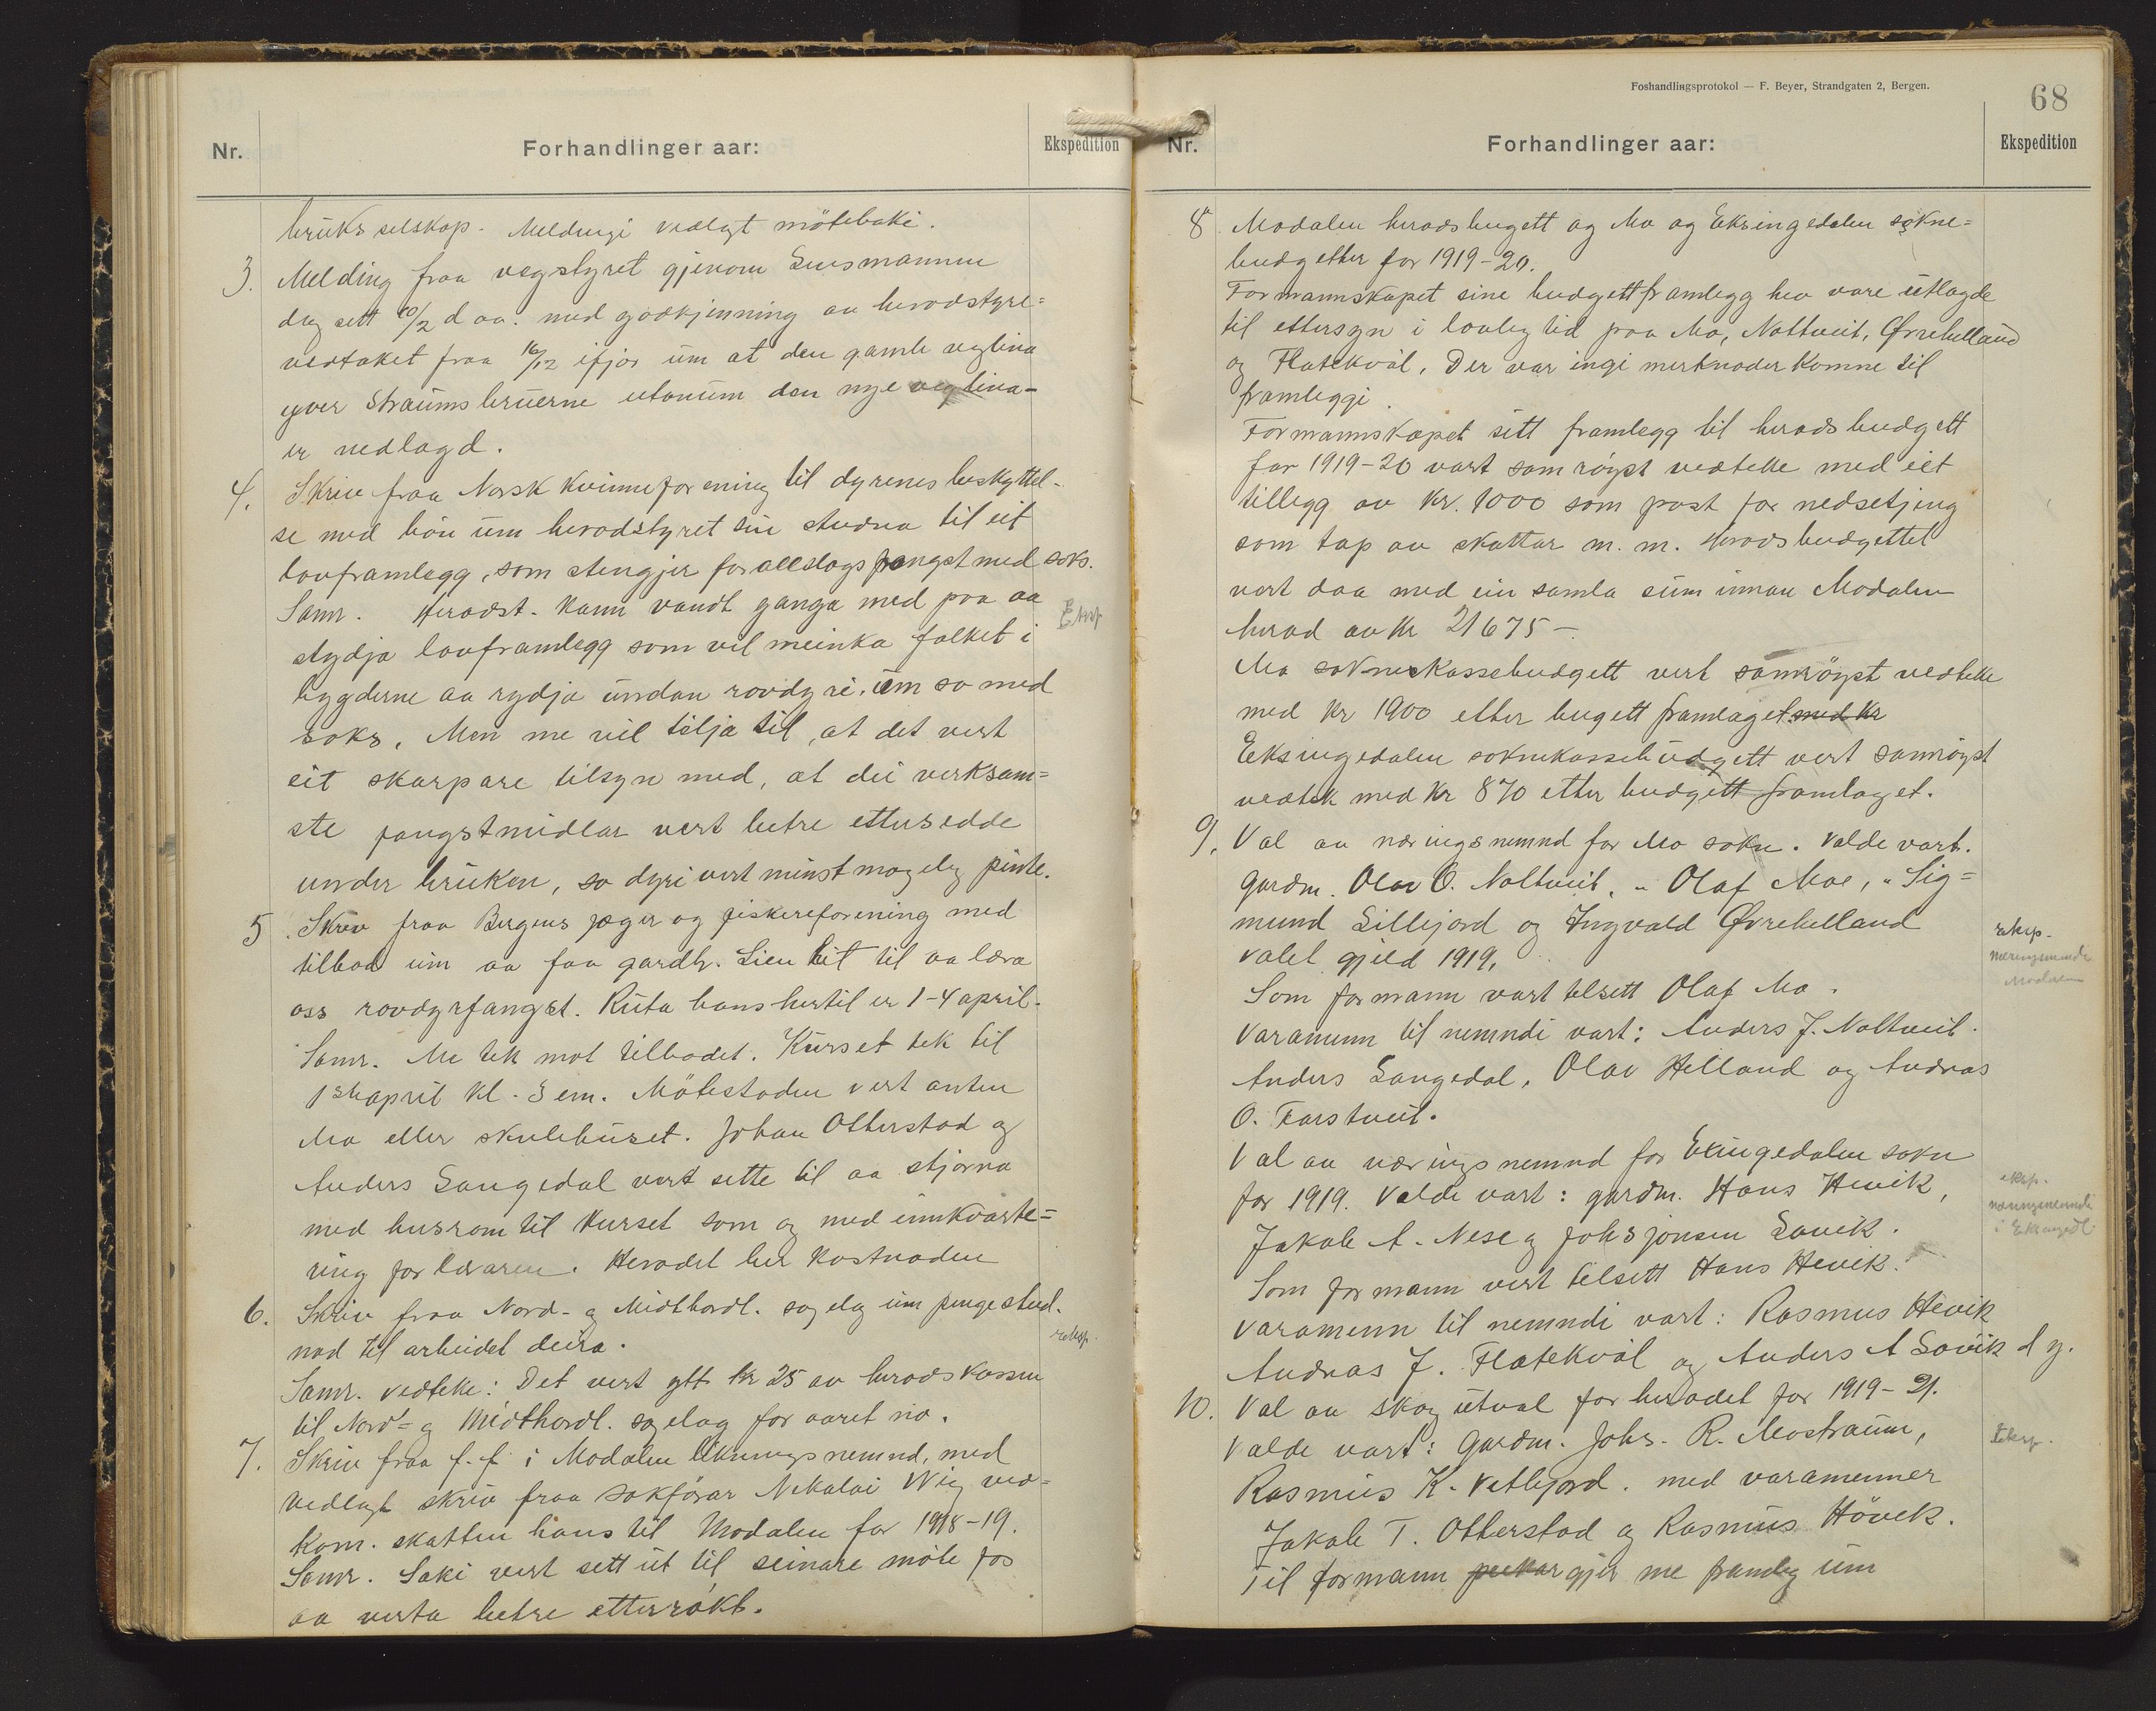 Nr.
Forhandlinger aar:
Ekspedition
bruks selskap. Meldingi vedlegt möteboki.
3. Melding fraa vegstyret gjenom Lensmannen
dag sett 10/2 d aa. med godkjenning av heradstyre=
vedtaket fraa 16/12 ifjor um at den gamle veglina
yver Straumsbruerne utanum den nye veglina-
er nedlagd.
4. Skriv fraa Norsk kvinneforening til dyrenes beskyttel-
se med bön um heradstyret sin studna til eit
lovframlegg, som stengjer for allslags fangst med saks.
Samr. Heradst. kann vandt ganga med paa aa
stydja lovframlegg som vil meinka folket i
bygderne aa rydja undan rovdyri, um so med
saks. Men me vil tilja til, at det vert
eit skarpare tilsyn med, at dei verksam=
ste fangstmidlar vert betre ettersedde
under bruken, so dyri vert minst mogeleg pinte.
5. Skriv fraa Bergens jæger og fiskereforening med
tilbod um aa faa gardbr. Lien hit til aa læra
oss rovdyrfangst. Ruta hans hertil er 1-4 april.
Samr. Me tek mot tilbodet. Kurset tek til
1ste april kl. 3 em. Mötestaden vert anten
Mo eller skulehuset. Johan Otterstad og
Anders Langedal vert sette til aa stjorna
med husrom til kurset som og med innkvarte=
ring for læraren. Heradet ber kostnaden
6. Skriv fraa Nord- og Midthordl. sogelag um pengestud-
nad til arbeidet deira.
eksp.
Samr. vedteke: Det vert gjt kr 25 av heradskassen
til Nord- og Midthordl. sogelag for aaret no.
7. Skriv fraa f.f. i Modalen likningsnemnd, med
vedlagt skriv fraa sakförar Nikolai Wig ved=
kom. skatten hans til Modalen for 1918-19.
Samr. Saki vert sett ut til seinare möte for
aa verta betre etterrökt.
Foshandlingsprotokol — F. Beyer, Strandgaten 2, Bergen.
68
Nr.
Forhandlinger aar:
Ekspedition
8. Modalen heradsbugett og Mo og Eksingedalen sokne=
budgetter for 1919-20.
Formannskapet sine budgettframlegg hev vore utlagde
til ettersyn i lovleg tid paa Mo, Nottveit, Øvrehelland
og Flatekvål. Der var ingi merknader komne til
framleggi.
Formannskapet sitt framlegg til heradsbudgett
for 1919-20 vart samröyst vedteke med eit
tillegg av kr. 1000 som post for nedsetjing
som tap av skattar m. m. Heradsbudgettet
vert daa med ein samla sum innan Modalen
herad av kr 21675-.
Mo soknekassebudgett vert samröyst vedteke
med kr 1900 etter bugett framlaget med kr
Eksingedalen soknekassebudgett vert samröyst
vedtek med kr 870 etter budgett framlaget.
9. Val av næringsnemnd for Mo sokn. Valde vart.
Gardm. Olav O. Nottveit, " Olaf Moe, " Sig=
mund Lillejord og Ingvald Øvrehelland
valet gjeld 1919.
eksp.
næringsnemndi
Modalen
Som formann vart tilsett Olaf Mo.
Varamenn til nemndi vart: Anders J. Nottveit.
Anders Langedal, Olav Helland og Andras
O. Farstveit.
Val av næringsnemnd for Eksingedalen sokn
for 1919. Valde vart: gardm. Hans Hevik,
Jakob A. Nese og Johs Jonsen Lavik.
eksp.
næringsnemndi
i Eksingedl.
Som formann vert tilsett Hans Hevik.
Varamenn til nemndi vart: Rasmus Hevik
Andras J. Flatekvål og Anders A Lavik d y.
10. Val av skogutval for heradet for 1919-21.
Valde vart: Gardm. Johs. R. Mostraum,
Eksp.
Rasmus K. Vetlejord. med varamenner
Jakob T. Otterstad og Rasmus Hövik.
Til formann peekar gjer me framlegg um